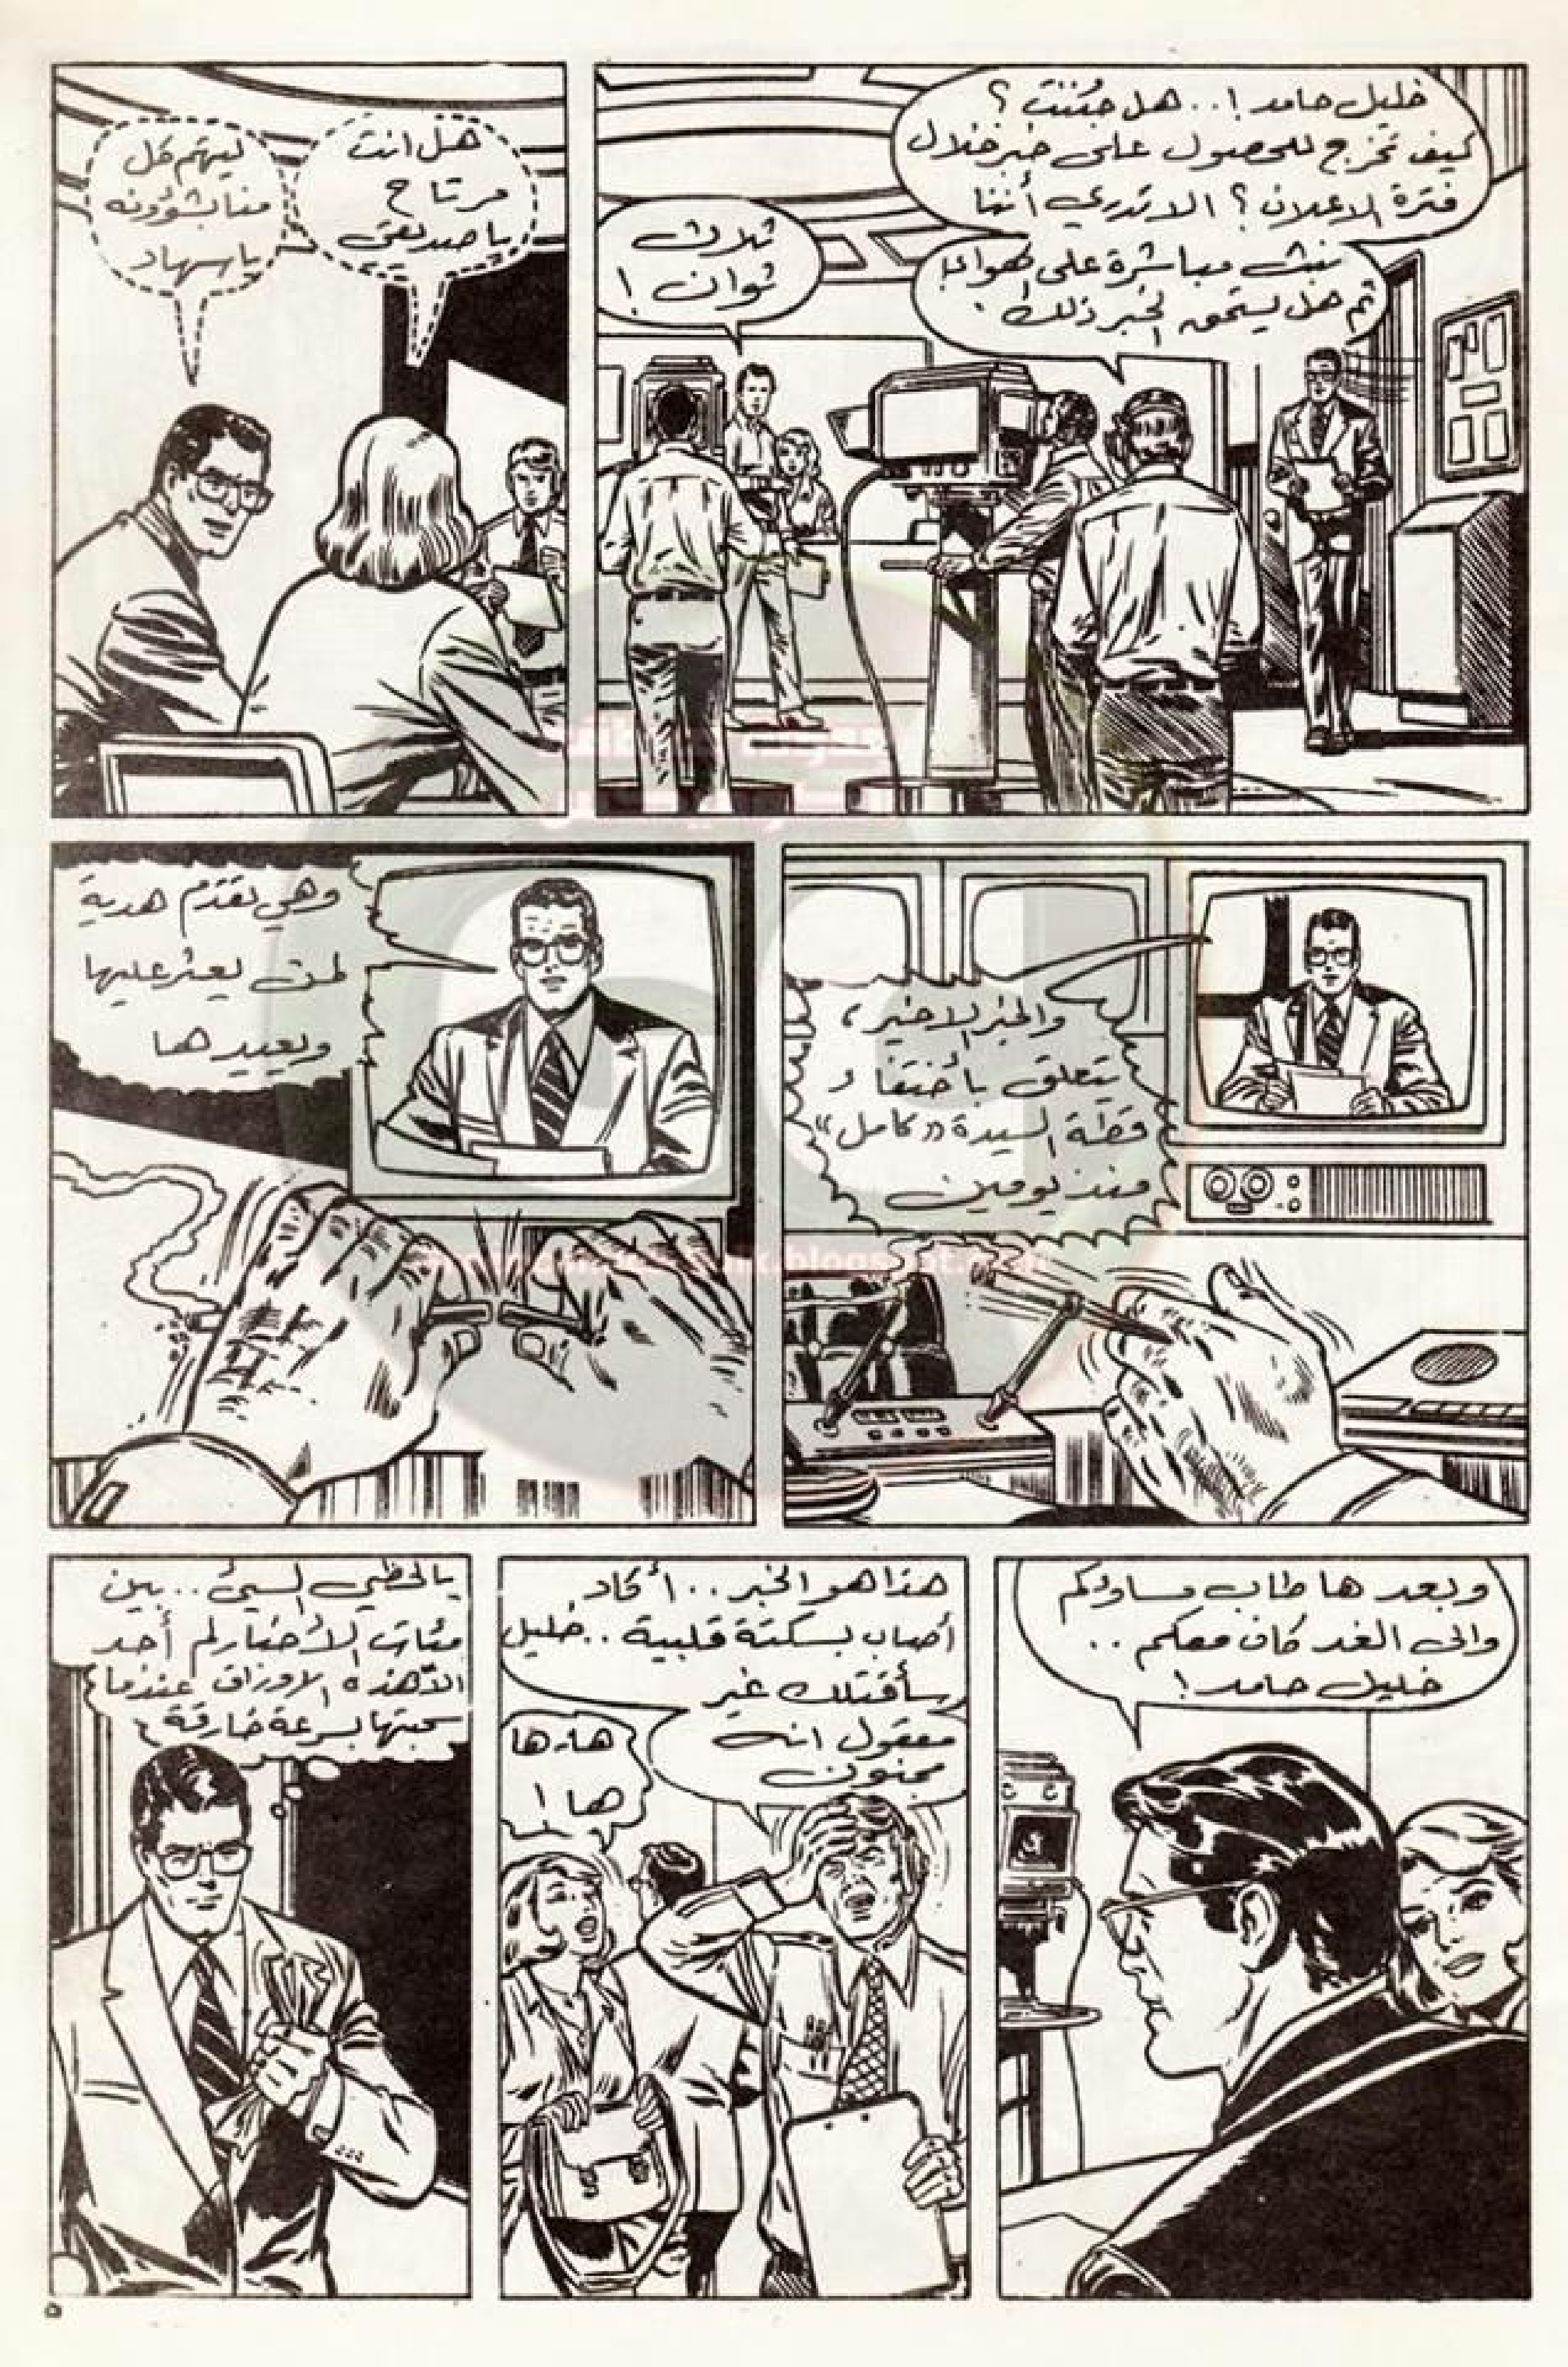 خليل حامد !.. هل جُننت ؟
كيف تخرج للحصول على خبر خلال
فترة الاعلان ؟ الا تدري أننا
نبث مباشرة على الهواء !
ثم هل يستحق الخبر ذلك
ثلاث
ثوان !
هل انت
مرتاح
يا صديقي
ليهتم كل
منا بشؤونه
يا سهاد
والخبر الاخير ،
يتعلق باختفاء
قطة السيدة «كامل»
منذ يومين
وهي تقدم هدية
لمن يعثر عليها
ويعيدها
وبعدها طاب مساؤكم
والى الغد كان معكم ..
خليل حامد !
هذا هو الخبر .. أكاد
أصاب بسكتة قلبية .. خليل
سأقتلك غير
معقول انه
مجنون
هاها
ها !
يا لحظي السيئ .. بين
مئات الأخبار لم أجد
الا هذه الاوراق عندما
سحبتها بسرعة خارقة
٥